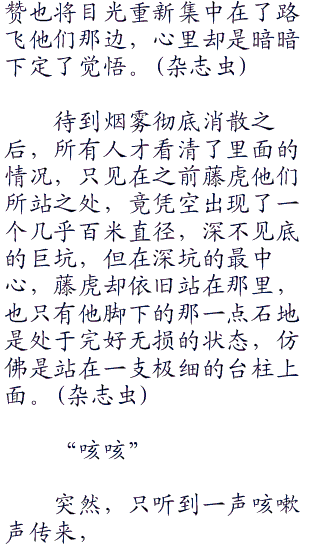 赞也将目光重新集中在了路
飞他们那边，心里却是暗暗
下定了觉悟。(杂志虫)
待到烟雾彻底消散之
后，所有人才看清了里面的
情况，只见在之前藤虎他们
所站之处，竟凭空出现了一
个几乎百米直径，深不见底
的巨坑，但在深坑的最中
心，藤虎却依旧站在那里，
也只有他脚下的那一点石地
是处于完好无损的状态，仿
佛是站在一支极细的台柱上
面。(杂志虫)
“咳咳”
突然，只听到一声咳嗽
声传来，